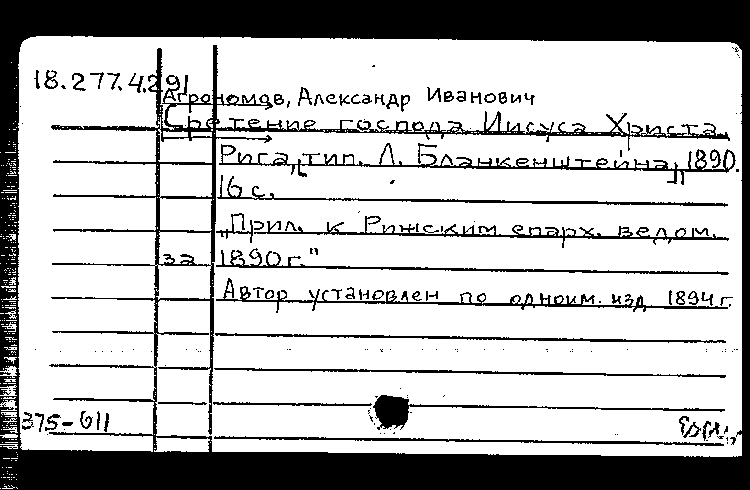 18.277.4.291
Агрономов, Александр Иванович
Сретение господа Иисуса Христа.
Рига, тип. Л. Бланкенштейна, 1890.
16 с.
„Прил. к Рижским епарх. ведом.
за 1890 г."
Автор установлен по одноим. изд 1894 г.
375-611